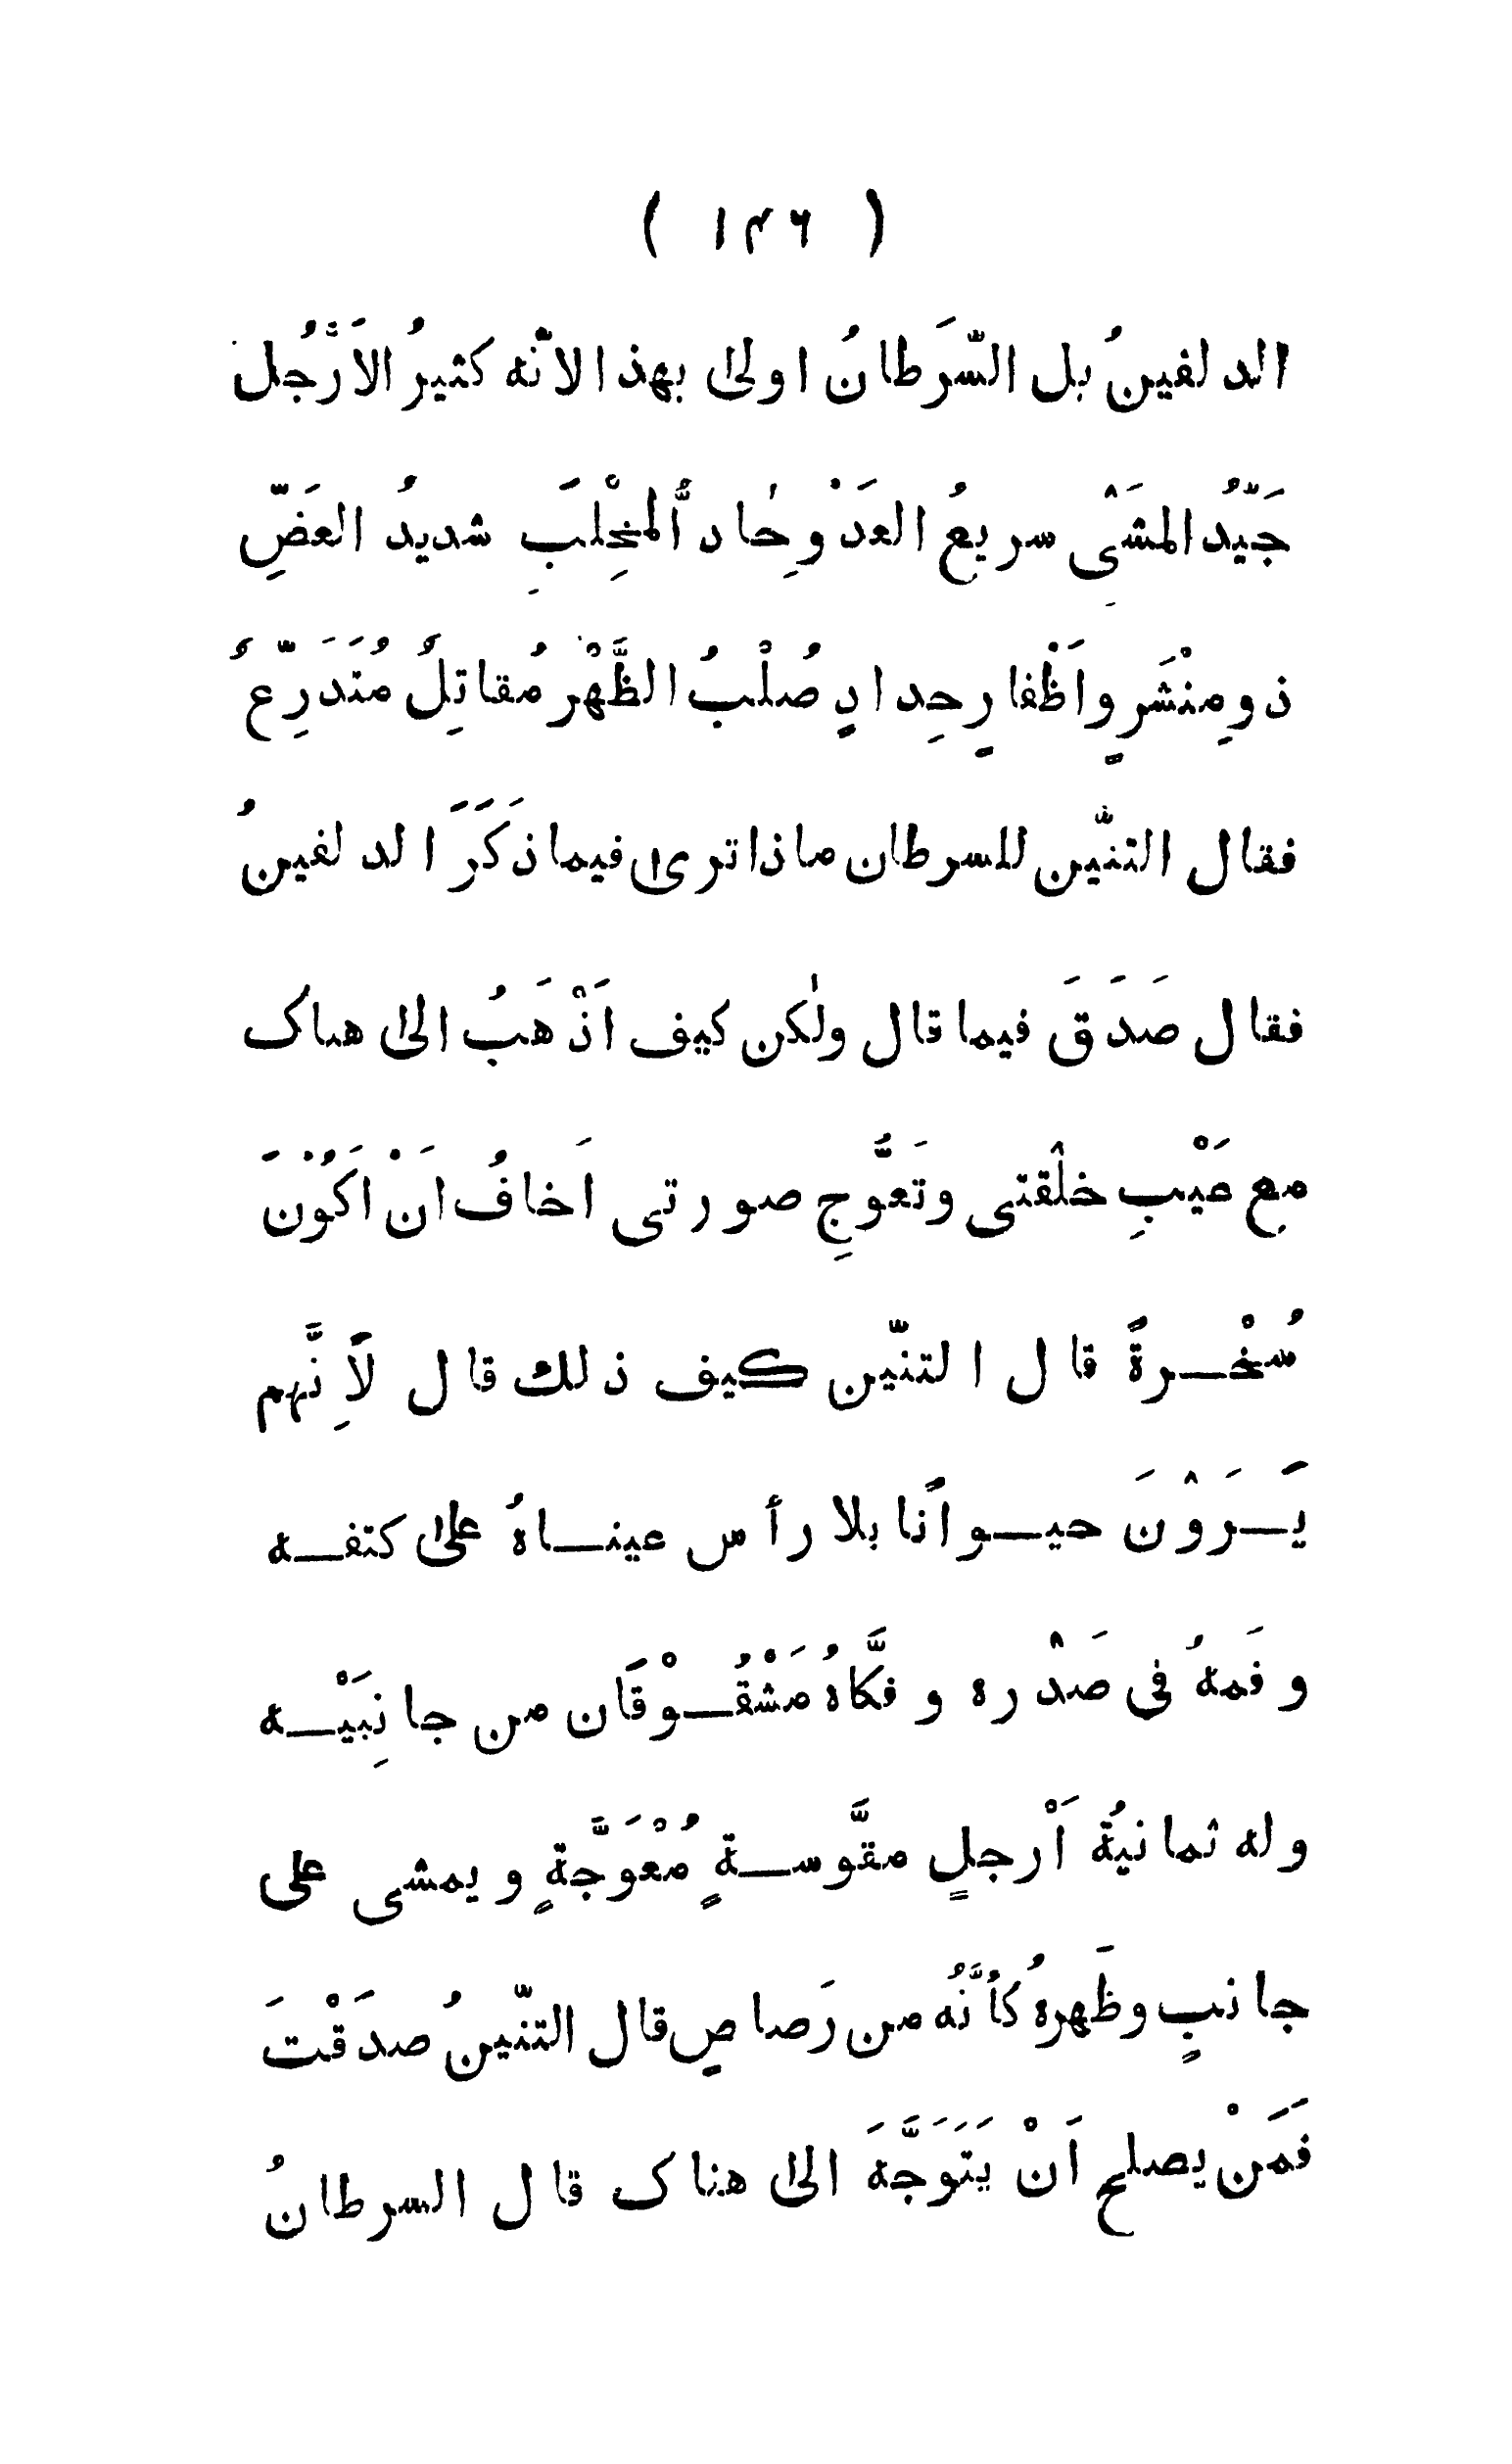 ( ۱۴۶ )
الدلفينُ بل السَّرَطانُ اولىٰ بهذا لانّه كثيرُ الاَرْجُل
جَيّدُ المشَْىِ سريعُ العَدْوِ حٰادُّ المِخْلَبِ شديدُ العَضِّ
ذومِنْشَرٍ واَظْفارٍ حِدادٍ صُلْبُ الظَّهْر مُقاتِلٌ مُتَدَرِّعٌ
فقال التنّين للسرطان ماذا ترىٰ فيما ذَكَرَ الدلفينُ
فقال صَدَقَ فيما قال ولٰكن كيف اَذْهَبُ الىٰ هناك
مع عَيْبِ خلْقتى وتَعَوُّجِ صورتى اَخافُ اَنْ اَكُوْنَ
سُخْرةً قال التنّين كيف ذلك قال لِاَنَّهم
يَرَوْنَ حيوانًا بلا رأس عيناهُ علىٰ كتفه
وفَمهُ فى صَدْره وفَكَّاهُ مَشْقُوْقَان من جانِبَيْه
وله ثمانيةُ اَرْجلٍ مقَوَّسةٍ مُعْوَجَّةٍ ويمشى على
جانبٍ وظَهرهُ كأنَّهُ من رَصاصٍ قال التنّينُ صدَقْتَ
فَمَنْ يصلح اَنْ يَتَوَجَّهَ الىٰ هناك قال السرطانُ